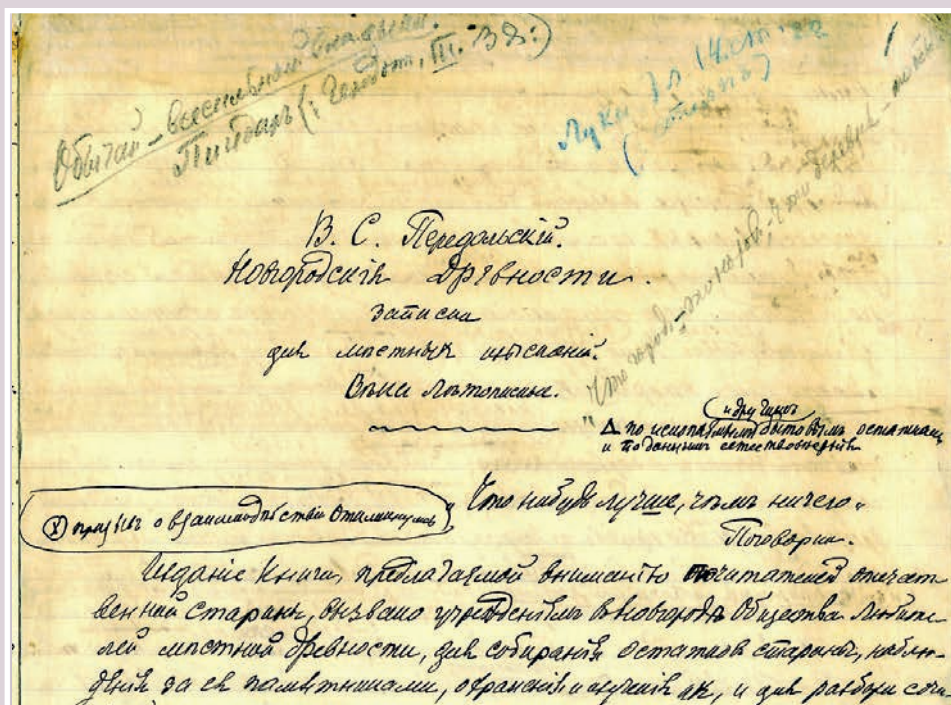 Обычай – всесильный
Пиндаръ (: Геродот, III. 38:)
Луки
1
В. С. Передольскiй.
Новгородскiя Древности.
Записка
для мѣстныхъ изысканiй.
Вѣка лѣтописные.
и другимъ
Δ по ископаемымъ бытовымъ остаткамъ
и по даннымъ естествовѣдѣнiя
„Что нибудь лучше, чѣмъ ничего„
(X) о взаимодѣйствiи
Поговорка.
Изданiе Книги, предлагаемой вниманiю почитателей отечест-
венной старины, вызвано учрежденiемъ въ Новгородѣ Общества Любите-
лей мѣстной древности, для собиранiя остатковъ старины, наблю-
денiя за ея памятниками, охраненiя и изученiя их, и для разбора сочи-